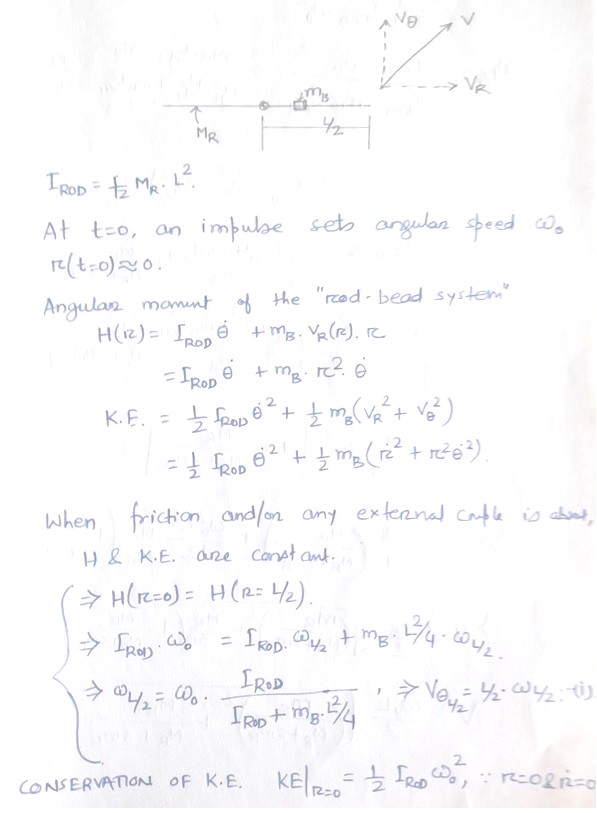 Vθ V
VR
mB
MR L/2
I_ROD = 1/12 MR. L².
At t=0, an impulse sets angular speed ω₀
r(t=0)≈0.
Angular moment of the "rod-bead system"
H(r) = I_ROD θ̇ + mB. VR(r). r
= I_ROD θ̇ + mB. r². θ̇
K.E. = 1/2 I_ROD θ̇² + 1/2 mB(VR² + Vθ²)
= 1/2 I_ROD θ̇² + 1/2 mB(ṙ² + r²θ̇²).
When friction and/or any external couple is
H & K.E. are constant.
⇒ H(r=0) = H(r=L/2).
⇒ I_ROD. ω₀ = I_ROD. ω_L/2 + mB. L²/4 . ω_L/2.
⇒ ω_L/2 = ω₀. I_ROD / (I_ROD + mB. L²/4) , ⇒ Vθ_L/2 = L/2. ω_L/2. -(i)
CONSERVATION OF K.E. KE|r=0 = 1/2 I_ROD ω₀², ∵ r=0 & ṙ=0